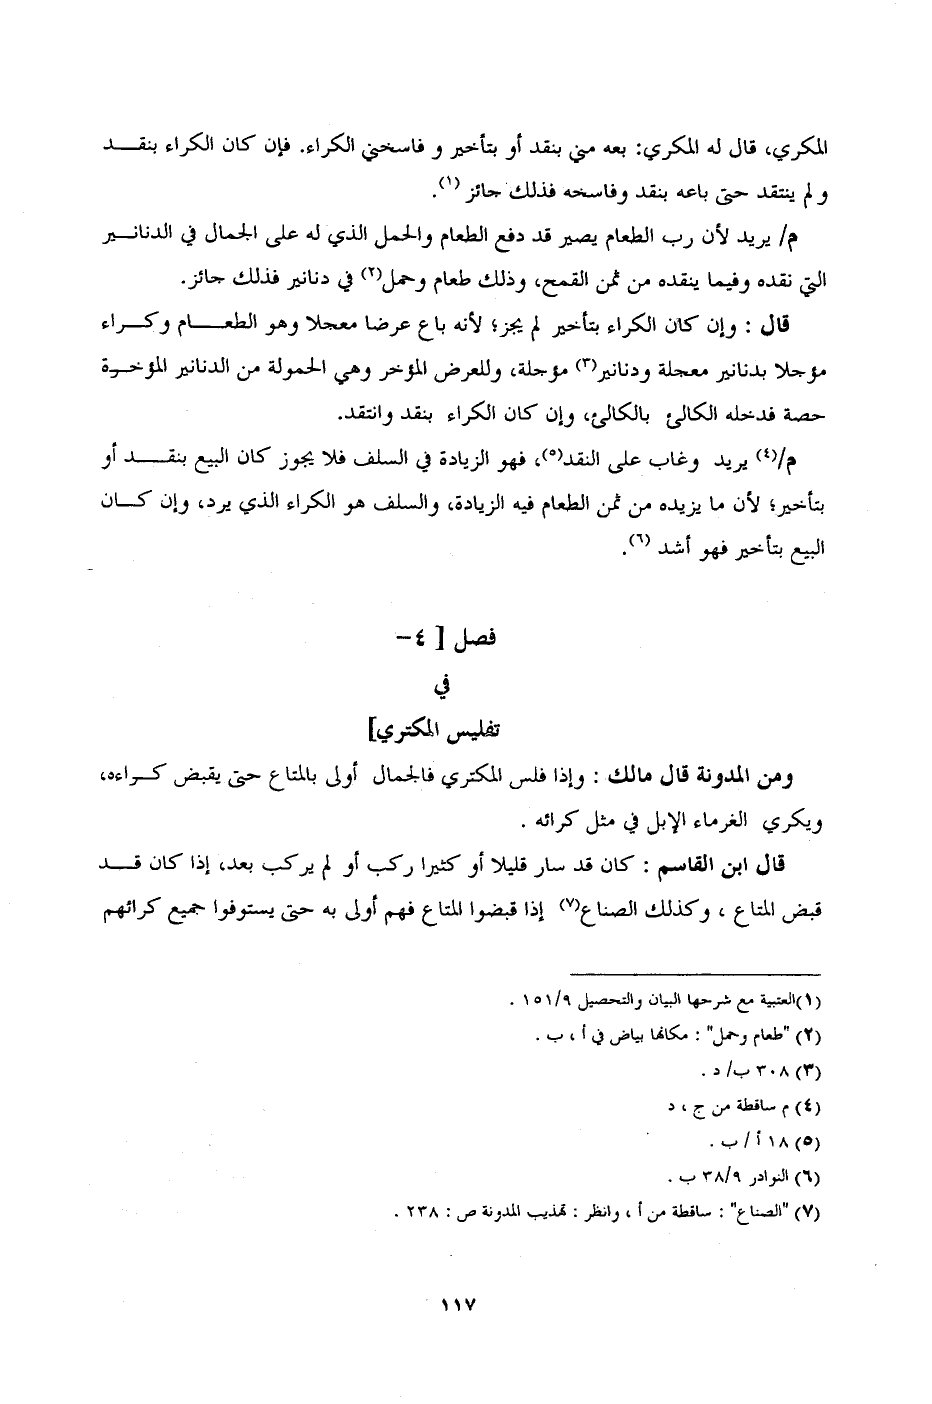 المكري، قال له المكري: بعه مني بنقد أو بتأخير و فاسخني الكراء. فإن كان الكراء بنقد
و لم ينتقد حتى باعه بنقد وفاسخه فذلك جائز (١).
م/ يريد لأن رب الطعام يصير قد دفع الطعام والحمل الذي له على الجمال في الدنانير
التي نقده وفيما ينقده من ثمن القمح، وذلك طعام وحمل(٢) في دنانير فذلك جائز.
قال : وإن كان الكراء بتأخير لم يجز؛ لأنه باع عرضا معجلا وهو الطعام وكراء
مؤجلا بدنانير معجلة ودنانير(٣) مؤجلة، وللعرض المؤخر وهي الحمولة من الدنانير المؤخرة
حصة فدخله الكالئ بالكالئ، وإن كان الكراء بنقد وانتقد.
م/(٤) يريد وغاب على النقد(٥)، فهو الزيادة في السلف فلا يجوز كان البيع بنقد أو
بتأخير؛ لأن ما يزيده من ثمن الطعام فيه الزيادة، والسلف هو الكراء الذي يرد، وإن كان
البيع بتأخير فهو أشد (٦).
فصل [ ٤-
في
تفليس المكتري]
ومن المدونة قال مالك : وإذا فلس المكتري فالجمال أولى بالمتاع حتى يقبض كراءه،
ويكري الغرماء الإبل في مثل كرائه .
قال ابن القاسم : كان قد سار قليلا أو كثيرا ركب أو لم يركب بعد، إذا كان قد
قبض المتاع ، وكذلك الصناع(٧) إذا قبضوا المتاع فهم أولى به حتى يستوفوا جميع كرائهم
(١)العتبية مع شرحها البيان والتحصيل ١٥١/٩ .
(٢) "طعام وحمل" : مكانها بياض في أ ، ب .
(٣) ٣٠٨ ب/ د .
(٤) م ساقطة من ج ، د
(٥) ١٨ أ / ب .
(٦) النوادر ٣٨/٩ ب .
(٧) "الصناع" : ساقطة من أ ، وانظر : تهذيب المدونة ص : ٢٣٨ .
١١٧